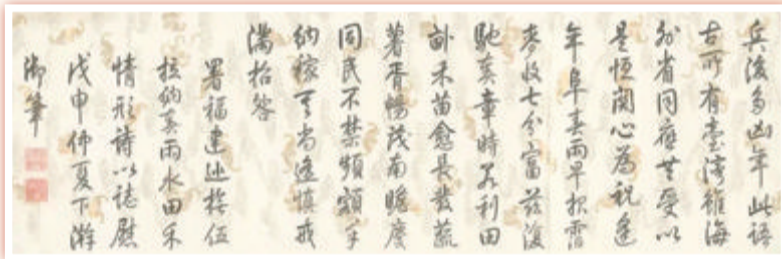 兵後多凶年此語
古所有臺灣雖海
外省同應受以
是恒関心為祝逢
年阜春雨早報霑
麥收七分富茲復
馳奏章時若利田
禾苗愈長發蔬
薯胥暢茂南瞻慶
同民不禁頻額手
納稼尚遙慎戒
滿招咎
署福建巡撫伍
拉納奏雨水田禾
情形詩以誌慰
戊申仲夏下澣
御筆